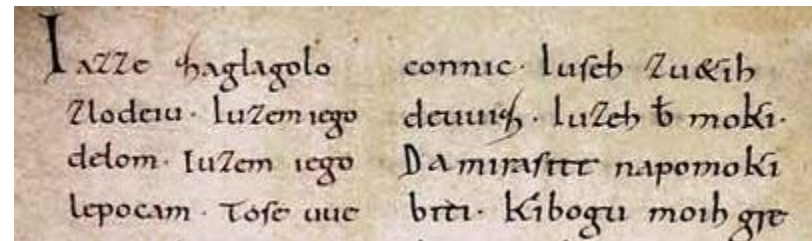 Iazze zaglagolo
zlodeiu. Iuzem iego
delom. Iuzem iego
lepocam. Tose uue
connic. Iuseh zu&ih
deuuiz. Iuzeh t moki.
Da mirasite napomoki
brei. Kibogu moih gre